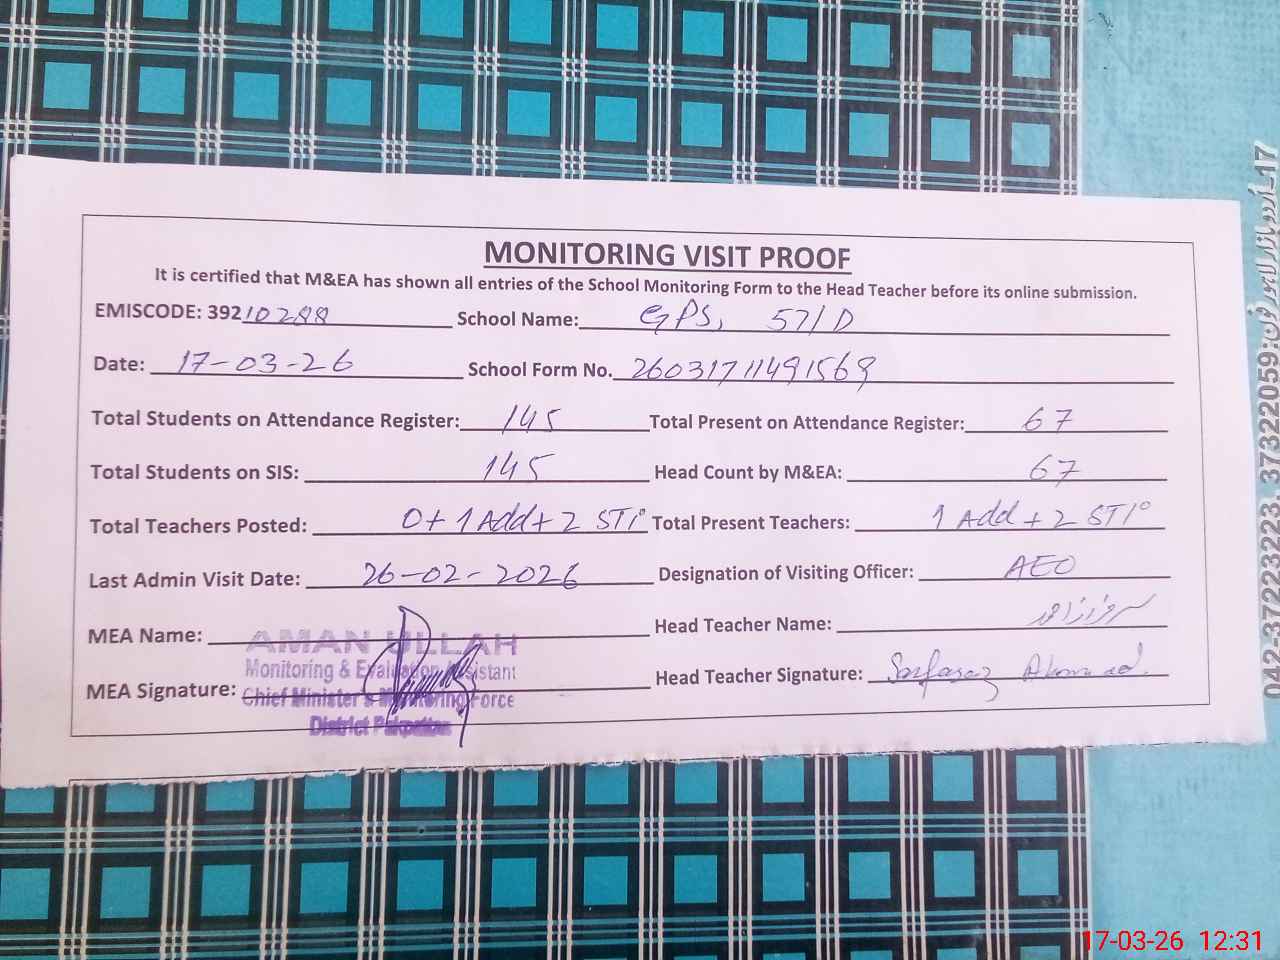 MONITORING VISIT PROOF
It is certified that M&EA has shown all entries of the School Monitoring Form to the Head Teacher before its online submission.
EMISCODE: 39210288 School Name: GPS, 57/D
Date: 17-03-26 School Form No. 26031711491569
Total Students on Attendance Register: 145 Total Present on Attendance Register: 67
Total Students on SIS: 145 Head Count by M&EA: 67
Total Teachers Posted: 0+1 Add+2 STI Total Present Teachers: 1 Add+2 STI
Last Admin Visit Date: 26-02-2026 Designation of Visiting Officer: AEO
MEA Name: AMAN ULLAH Head Teacher Name:
Monitoring & Evaluation Assistant
MEA Signature: Head Teacher Signature: Sarfaraz Ahmad
Chief Minister's Monitoring Force
District Pakpattan
042-37223223, 37322059
17-03-26 12:31